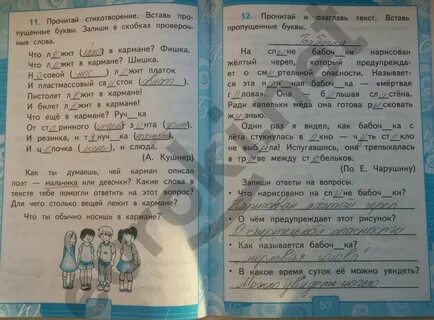 11. Прочитай стихотворение. Вставь про-
пущенные буквы. Запиши в скобках провероч-
ные слова.
Что лежит в кармане? Фишка.
Что лежит в кармане? Шишка.
Носовой (нос) лежит платок
И пластмассовый свисток
Пистолет лежит в кармане.
И билет лежит в кармане.
Что ещё в кармане? Руч__ка
От старинного
И резинка, и
И цепочка, и слюда.
(А. Кушнер)
Как ты думаешь, чей карман описал
поэт — мальчика или девочки? Какие слова в
тексте тебе помогли ответить на этот вопрос?
Для чего столько вещей лежит в кармане?
Что ты обычно носишь в кармане?
12. Прочитай и озаглавь текст. Вставь
пропущенные буквы.
Бабочка
На спине бабоч__ки нарисован
жёлтый череп, который предупреждает
о смертельной опасности. Называет-
ся эта бабоч__ка — «мёртвая
голова». Она большая сластёна.
Ради капельки мёда она готова рисковать
жизнью.
Один раз я видел, как бабоч__ка с
лёта стукнулась в окно — чуть стекло
не выбила! Испугавшись, она трепыхалась
в траве между стебельков.
(По Е. Чарушину)
Запиши ответы на вопросы.
• Что нарисовано на спине бабоч__ки?
Нарисован жёлтый череп
• О чём предупреждает этот рисунок?
О смертельной опасности
• Как называется бабоч__ка?
мёртвая голова
• В какое время суток её можно увидеть?
Можно увидеть ночью
53